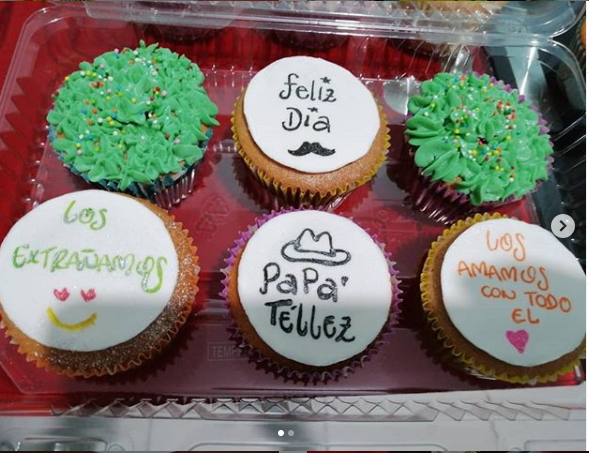 feliz
Dia
LOS
EXTRAÑAMOS
PaPa'
TELLEZ
LOS
AMAMOS
CON TODO
EL